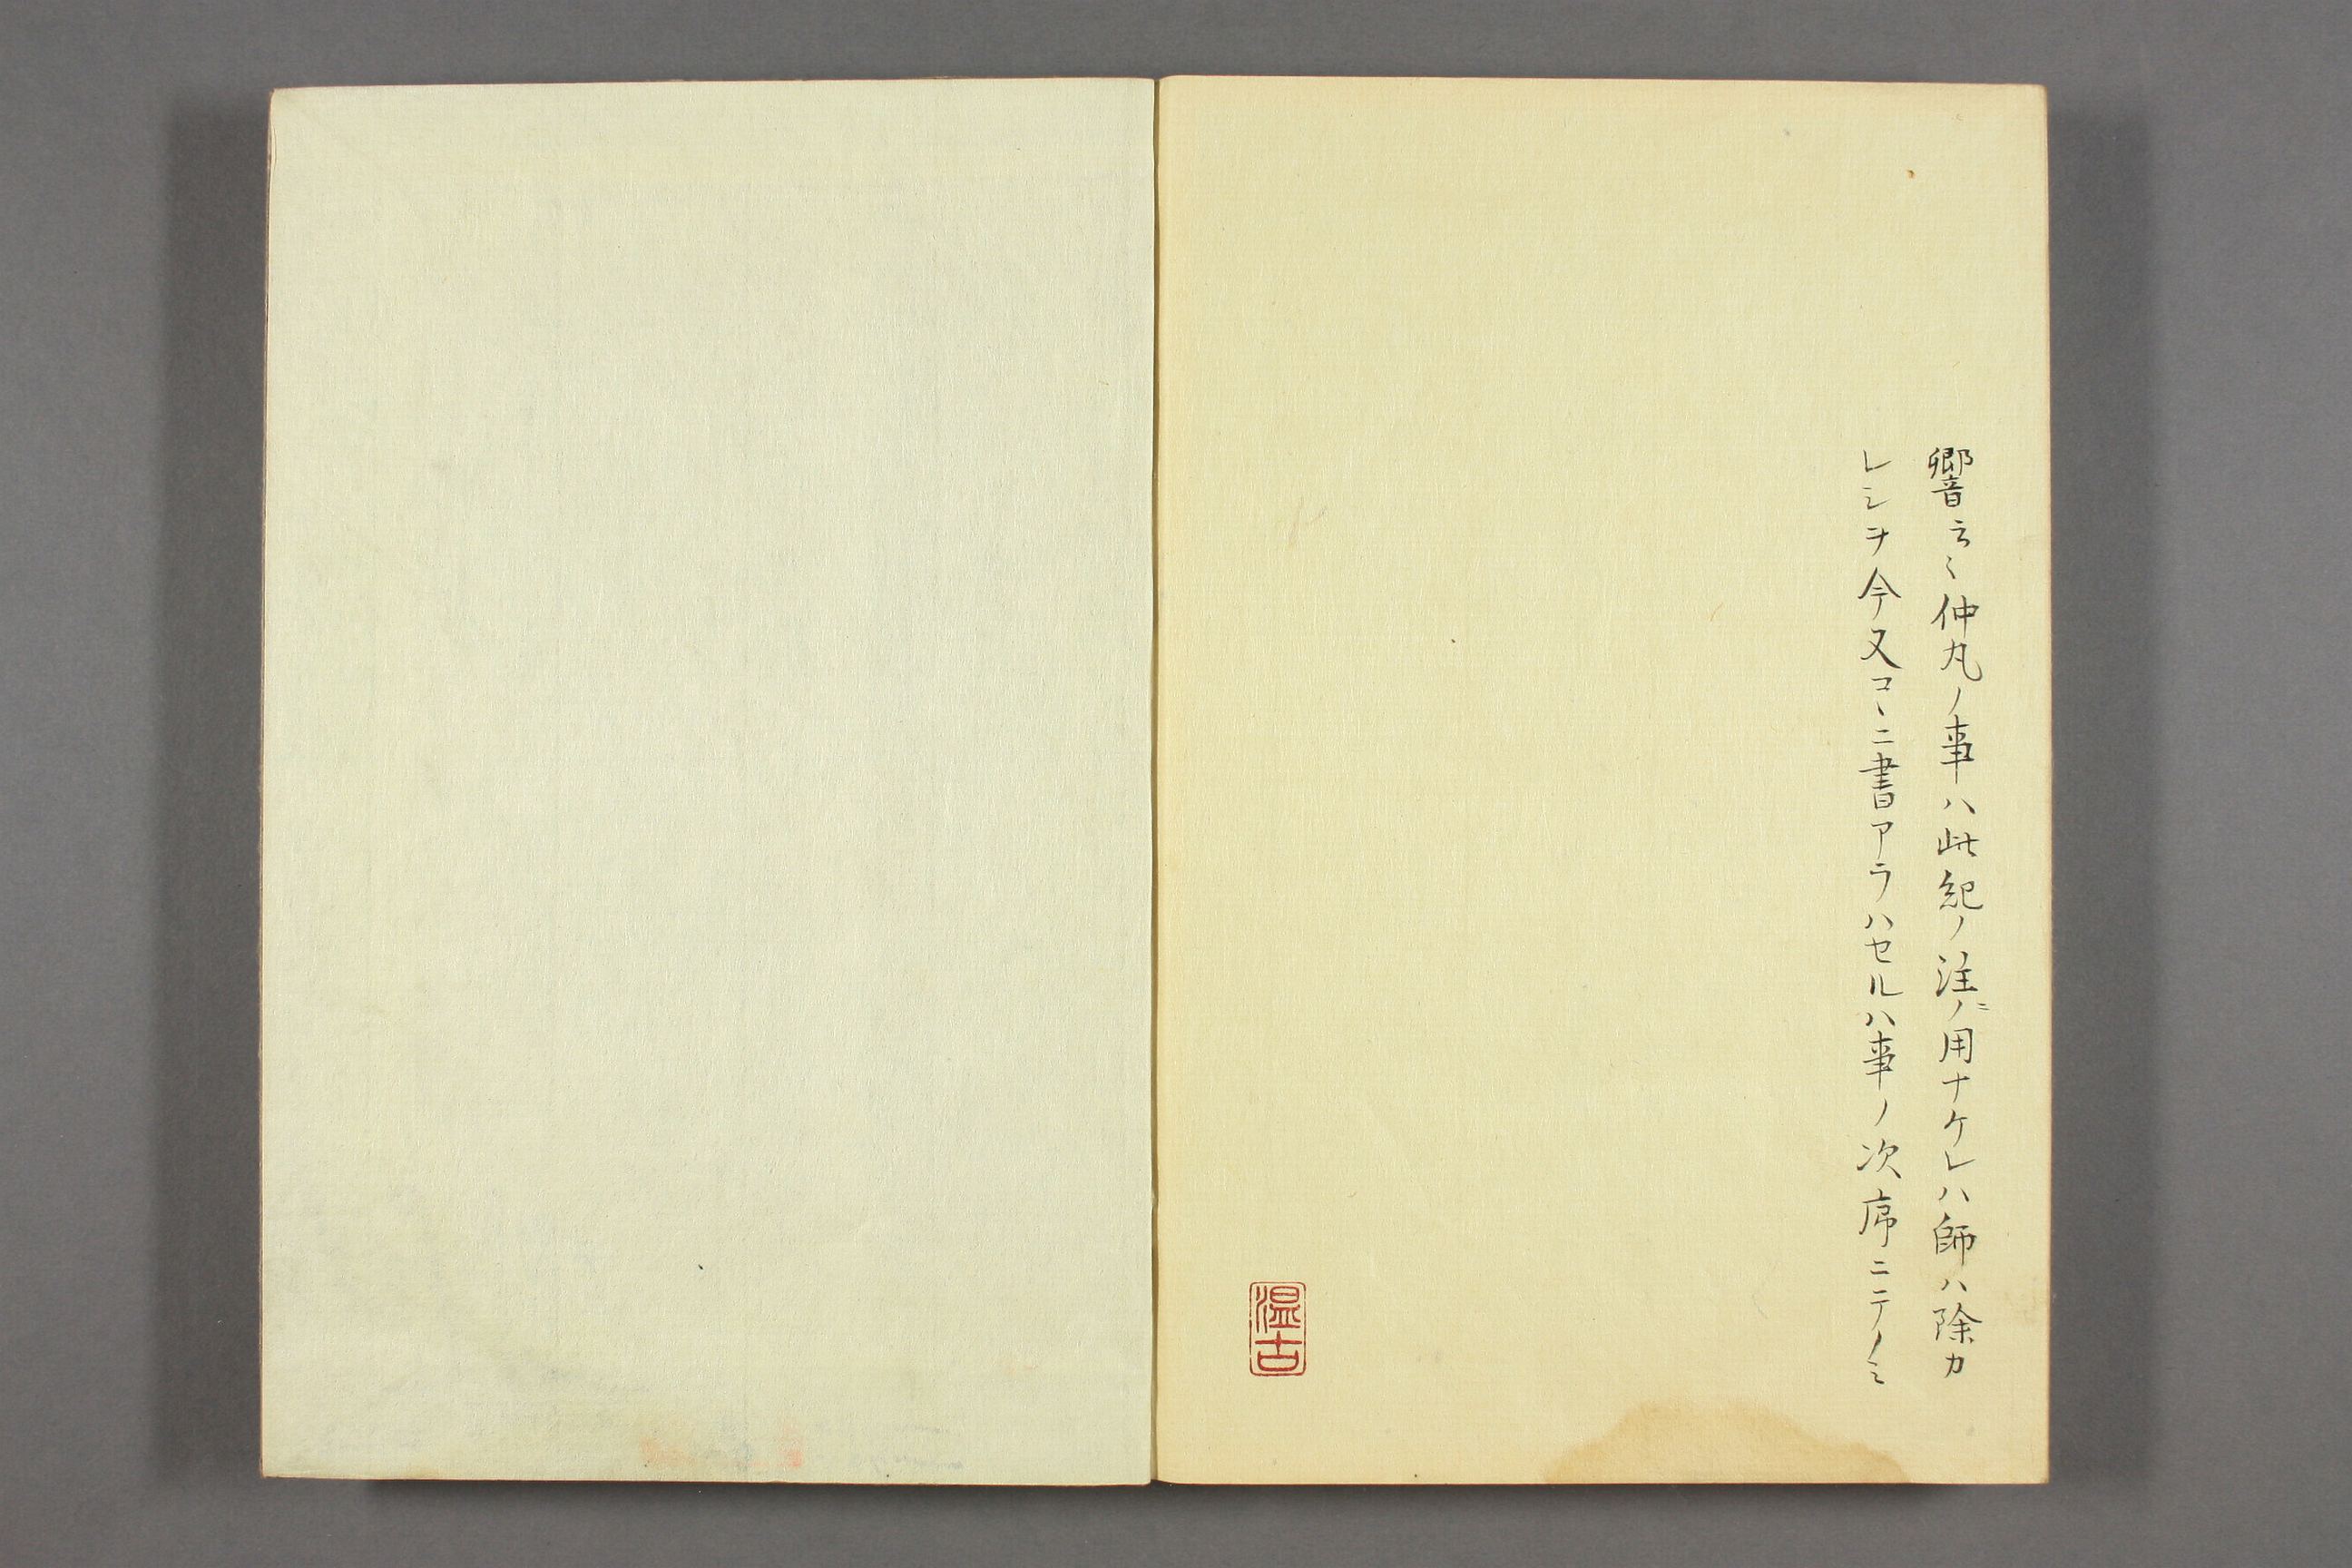 響云々仲丸ノ事ハ此紀ノ注ノニ用ナケレハ師ハ除カ
レシヲ今又コヽニ書アラハセルハ事ノ次序ニテノミ
温古